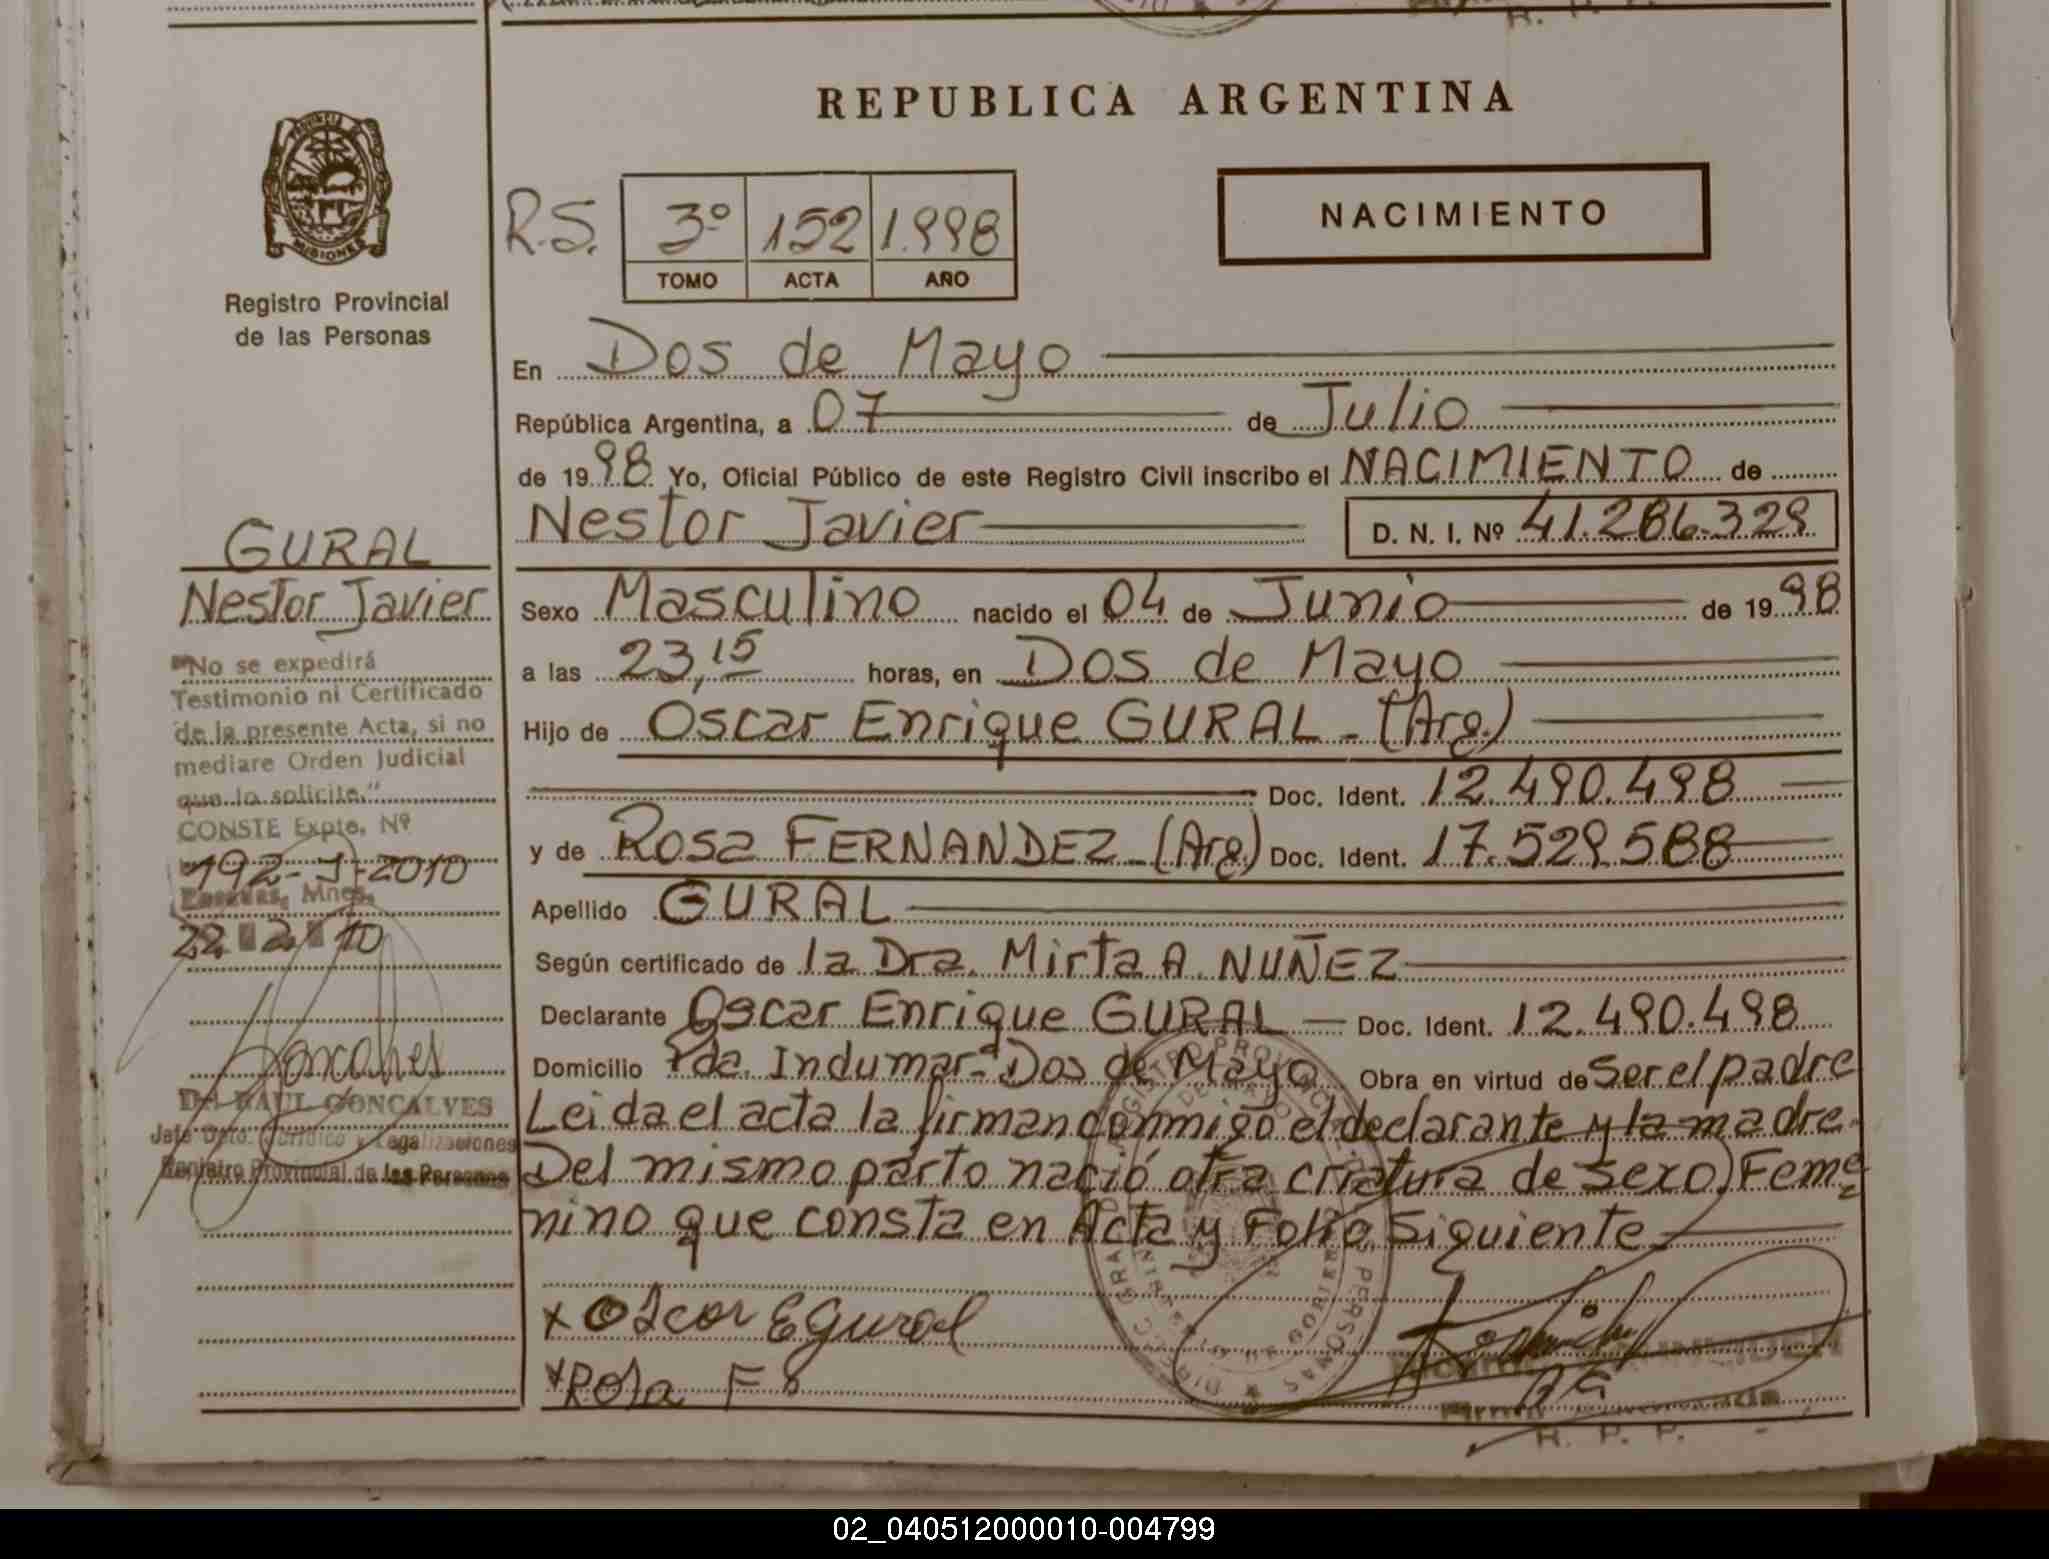 REPUBLICA ARGENTINA
PROVINCIA DE
MISIONES
Registro Provincial
de las Personas
R.S. 3º 152 1.998
TOMO ACTA AÑO
NACIMIENTO
En Dos de Mayo
República Argentina, a 07 de Julio
de 19 98 Yo, Oficial Público de este Registro Civil inscribo el NACIMIENTO de
Nestor Javier D. N. I. Nº 41.286.329
GURAL
Nestor Javier
"No se expedirá
Testimonio ni Certificado
de la presente Acta, si no
mediare Orden Judicial
que lo solicite."
CONSTE Expte. Nº
192-J-2010
Posadas, Mnes.
22 2 10
Goncalves
Dr. RAUL GONCALVES
Jefe Dpto. Jurídico y Legalizaciones
Registro Provincial de las Personas
Sexo Masculino nacido el 04 de Junio de 19 98
a las 23,15 horas, en Dos de Mayo
Hijo de Oscar Enrique GURAL - (Arg.)
Doc. Ident. 12.490.498
y de Rosa FERNANDEZ - (Arg.) Doc. Ident. 17.529.588
Apellido GURAL
Según certificado de la Dra. Mirta A. NUÑEZ
Declarante Oscar Enrique GURAL - Doc. Ident. 12.490.498
Domicilio Pda. Indumar - Dos de Mayo Obra en virtud de Ser el padre
Leida el acta la firman conmigo el declarante y la madre.
Del mismo parto nació otra criatura de sexo Feme
nino que consta en Acta y Folio Siguiente
x Oscar E Gural
x Rosa F
R. P. P.
02_040512000010-004799